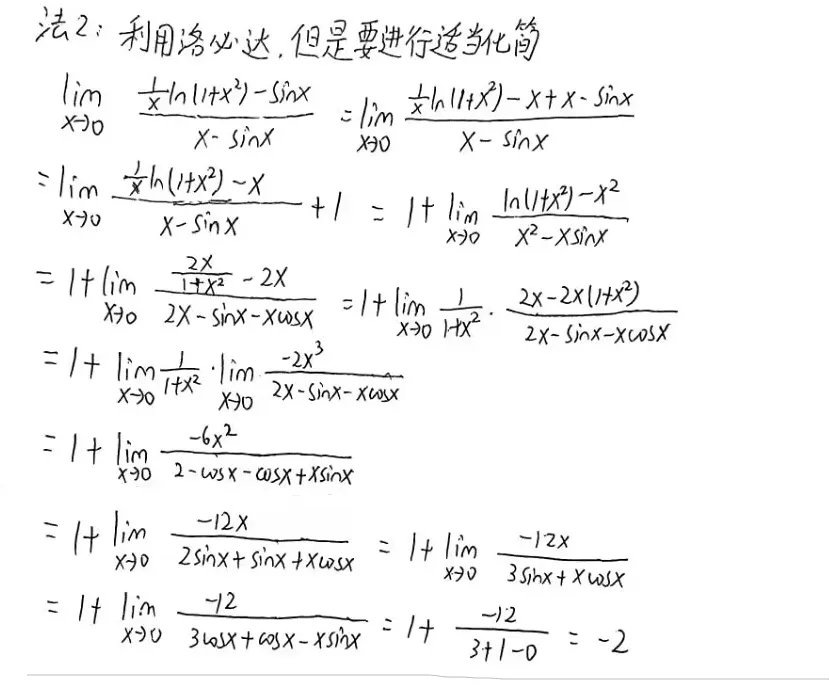 法2: 利用洛必达,但是要进行适当化简
lim_{x→0} (1/x ln(1+x²) - sinx)/(x - sinx) = lim_{x→0} (1/x ln(1+x²) - x + x - sinx)/(x - sinx)
= lim_{x→0} (1/x ln(1+x²) - x)/(x - sinx) + 1 = 1 + lim_{x→0} (ln(1+x²) - x²)/(x² - xsinx)
= 1 + lim_{x→0} (2x/(1+x²) - 2x)/(2x - sinx - xcosx) = 1 + lim_{x→0} 1/(1+x²) · (2x - 2x(1+x²))/(2x - sinx - xcosx)
= 1 + lim_{x→0} 1/(1+x²) · lim_{x→0} (-2x³)/(2x - sinx - xcosx)
= 1 + lim_{x→0} (-6x²)/(2 - cosx - cosx + xsinx)
= 1 + lim_{x→0} (-12x)/(2sinx + sinx + xcosx) = 1 + lim_{x→0} (-12x)/(3sinx + xcosx)
= 1 + lim_{x→0} (-12)/(3cosx + cosx - xsinx) = 1 + (-12)/(3+1-0) = -2